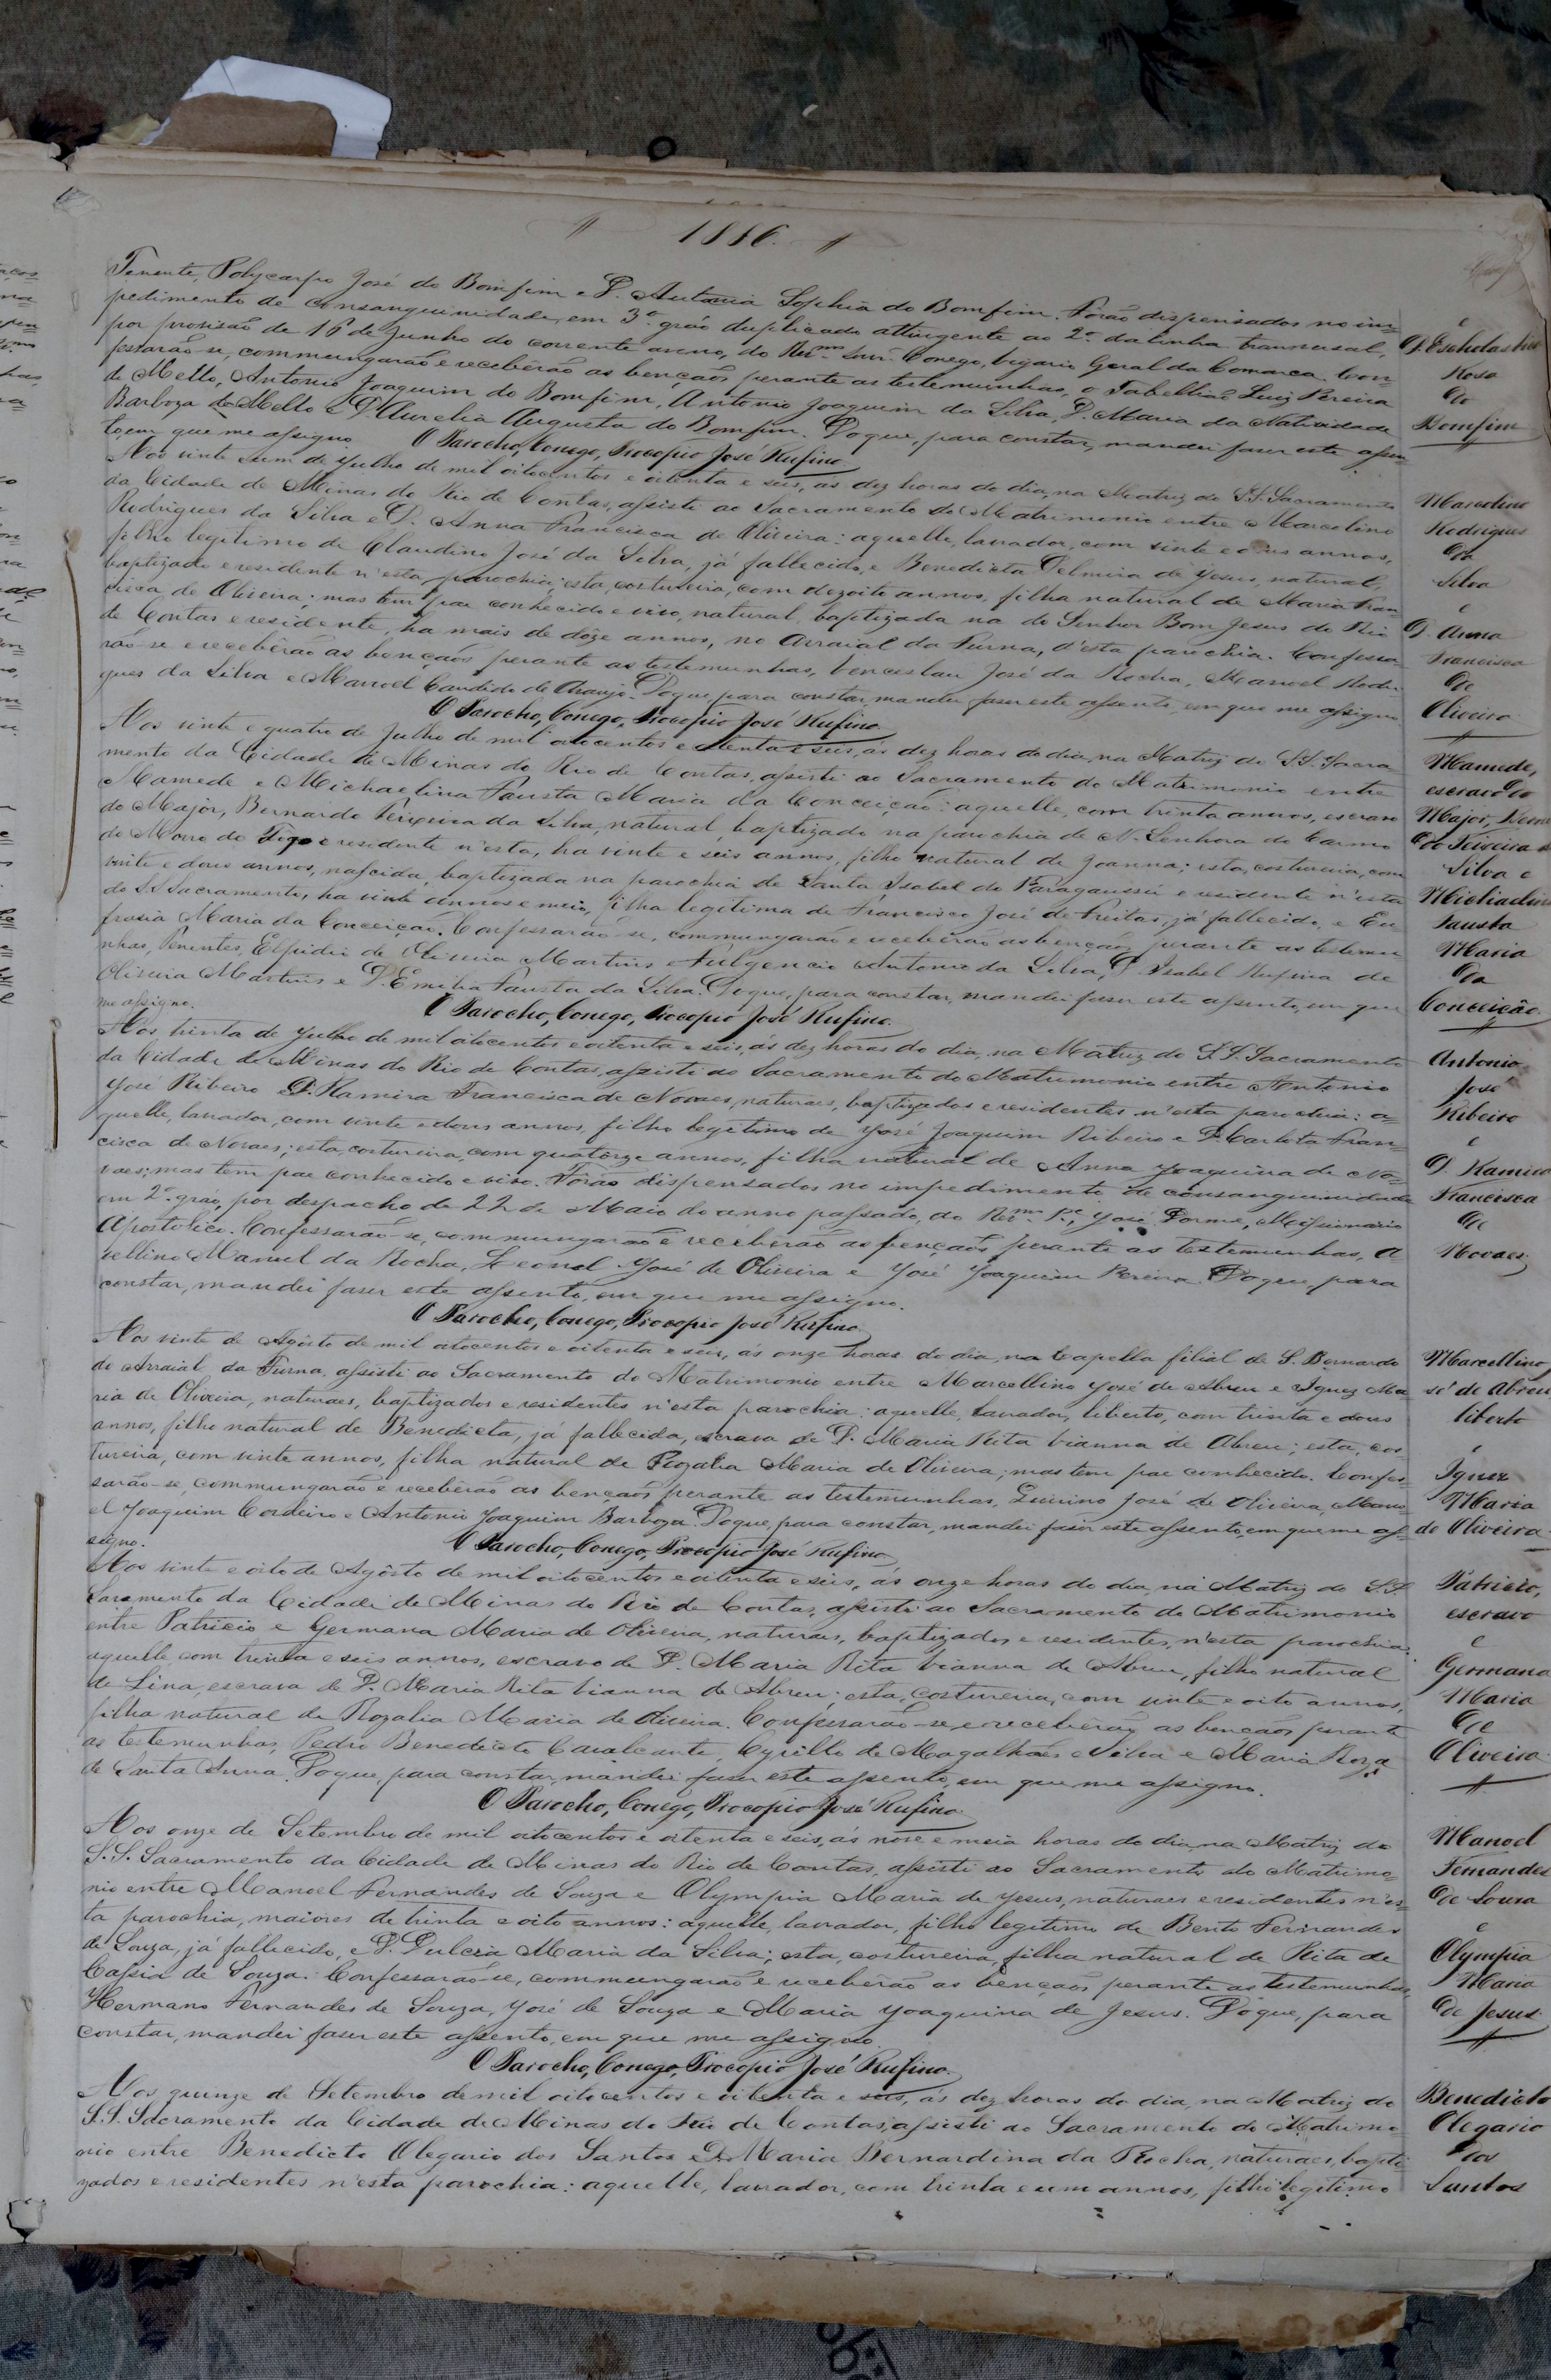 1886.
Tenente, Polycarpo José do Bomfim e D. Antonia Sophia do Bomfim. Forão dispensados no im-
pedimento de consanguinidade, em 3º gráo duplicado attingente ao 2º da linha transversal,
por provisão de 16 de Junho do corrente anno, do Revmo Snr. Conego, Vigario Geral da Comarca. Con-
fessarão-se, commungarão e recebêrão as bençaõs perante as testemunhas, o Tabelliaõ Luiz Pereira
de Mello, Antonio Joaquim do Bomfim, Antonio Joaquim da Silva, D. Maria da Natividade
Barboza de Mello e D. Aurelia Augusta do Bomfim. Do que, para constar, mandei faser este assen-
to, em que me assigno. O Parocho, Conego, Procopio José Rufino.
D. Escholastica
Rosa
do
Bomfim
Aos vinte e um de Julho de mil oitocentos e oitenta e seis, as dez horas do dia, na Matriz do S.S. Sacramento
da Cidade de Minas do Rio de Contas, assisti ao Sacramento do Matrimonio entre Marcolino
Rodrigues da Silva e D. Anna Francisca de Oliveira: aquelle, lavrador, com vinte e annos,
filho legitimo de Claudino José da Silva, já fallecido, e Benedicta Delmira de Jesus, natural,
baptizado e residente n'esta parochia; esta, costureira, com dezoito annos, filha natural de Maria Fran-
cisca de Oliveira; mas tem pae conhecido e vivo, natural, baptizada na do Senhor Bom Jesus do Rio
de Contas e residente, ha mais de dôze annos, no Arraial da Furna, d'esta parochia. Confessa-
rão-se e recebêrão as bençaõs perante as testemunhas, Venceslau José da Rocha, Manoel Rodri-
gues da Silva e Manoel Candido de Araujo. Do que, para constar, mandei faser este assento, em que me assigno
O Parocho, Conego, Procopio José Rufino.
Marcolino
Rodrigues
da
Silva
e
D. Anna
Francisca
de
Oliveira
Aos vinte e quatro de Julho de mil oitocentos e oitenta e seis, as dez horas do dia, na Matriz do S.S. Sacra-
mento da Cidade de Minas do Rio de Contas, assisti ao Sacramento do Matrimonio entre
Mamede e Michaelina Fausta Maria da Conceição: aquelle, com trinta annos, escravo
do Major, Bernardo Teixeira da Silva, natural, baptizado na parochia de N. Senhora do Carmo
do Morro do Fogo e residente n'esta, ha vinte e seis annos, filho natural de Joanna; esta, costureira, com
vinte e dous annos, nascida, baptizada na parochia de Santa Isabel do Paraguassú e residente n'esta
do S.S. Sacramento, ha vinte annos e meio, filha legitima de Francisco José de Freitas, já fallecido, e Eu-
frasia Maria da Conceição. Confessarão-se, commungarão e recebêrão as bençaõs perante as testemu-
nhas, Tenentes, Elpidio de Oliveira Martins e Fulgencio Antonio da Silva, D. Isabel Rufina de
Oliveira Martins e D. Emilia Fausta da Silva. Do que, para constar, mandei faser este assento, em que
me assigno. O Parocho, Conego, Procopio José Rufino.
Mamede,
escravo do
Major, Bernar
do Teixeira da
Silva e
Michaelina
Fausta
Maria
da
Conceição.
Aos trinta de Julho de mil oitocentos e oitenta e seis, ás dez horas do dia, na Matriz do S.S. Sacramento
da Cidade de Minas do Rio de Contas, assisti ao Sacramento do Matrimonio entre Antonio
José Ribeiro e D. Ramira Francisca de Novaes, naturaes, baptizados e residentes n'esta parochia: a-
quelle, lavrador, com vinte e dous annos, filho legitimo de José Joaquim Ribeiro e D. Carlota Fran-
cisca de Novaes; esta, costureira, com quatorze annos, filha natural de Anna Joaquina de No-
vaes; mas tem pae conhecido e vivo. Forão dispensados no impedimento de consanguinidade
em 2º gráo, por despacho de 22 de Maio do anno passado, do Revmo Pe, José Dorme, Missionario
Apostolico. Confessarão-se, commungarão e recebêrão as bençaõs perante as testemunhas, A-
vellino Manoel da Rocha, Leonel José de Oliveira e José Joaquim Pereira. Do que, para
constar, mandei faser este assento, em que me assigno.
O Parocho, Conego, Procopio José Rufino.
Antonio
José
Ribeiro
e
D. Ramira
Francisca
de
Novaes
Aos vinte de Agôsto de mil oitocentos e oitenta e seis, ás onze horas do dia, na Capella filial de S. Bernardo
do Arraial da Furna, assisti ao Sacramento do Matrimonio entre Marcellino José de Abreu e Ignez Ma-
ria de Oliveira, naturaes, baptizados e residentes n'esta parochia: aquelle, lavrador, liberto, com trinta e dous
annos, filho natural de Benedicta, já fallecida, escrava de D. Maria Rita Vianna de Abreu; esta, cos-
tureira, com vinte annos, filha natural de Rozalia Maria de Oliveira; mas tem pae conhecido. Confes-
sarão-se, commungarão e recebêrão as bençaõs perante as testemunhas, Quirino José de Oliveira, Mano-
el Joaquim Cordeiro e Antonio Joaquim Barboza. Do que, para constar, mandei faser este assento, em que me as-
signo. O Parocho, Conego, Procopio José Rufino
Marcellino Jo
sé de Abreu
liberto
e
Ignez
Maria
de Oliveira
Aos vinte e oito de Agôsto de mil oitocentos e oitenta e seis, ás onze horas do dia, na Matriz do S.S.
Sacramento da Cidade de Minas do Rio de Contas, assisti ao Sacramento do Matrimonio
entre Patricio e Germana Maria de Oliveira, naturaes, baptizados e residentes, n'esta parochia:
aquelle, com trinta e seis annos, escravo de D. Maria Rita Vianna de Abreu, filho natural
de Lina, escrava de D. Maria Rita Vianna de Abreu; esta, costureira, com vinte e oito annos,
filha natural de Rozalia Maria de Oliveira. Confessarão-se e recebêrão as bençaõs perante
as testemunhas, Pedro Benedicto Cavalcante, Cyrillo de Magalhães e Silva e Maria Roza
de Santa Anna. Do que, para constar, mandei faser este assento, em que me assigno.
O Parocho, Conego, Procopio José Rufino
Patricio,
escravo
e
Germana
Maria
de
Oliveira
Aos onze de Setembro de mil oitocentos e oitenta e seis, ás nove e meia horas do dia, na Matriz do
S.S. Sacramento da Cidade de Minas do Rio de Contas, assisti ao Sacramento do Matrimo-
nio entre Manoel Fernandes de Souza e Olympia Maria de Jesus, naturaes e residentes n'es-
ta parochia, maiores de trinta e oito annos: aquelle, lavrador, filho legitimo de Bento Fernandes
de Souza, já fallecido, e D. Dulcia Maria da Silva; esta, costureira, filha natural de Rita de
Cassia de Souza. Confessarão-se, commungarão e recebêrão as bençaõs perante as testemunhas,
Hermano Fernandes de Souza, José de Souza e Maria Joaquina de Jesus. Do que, para
constar, mandei faser este assento, em que me assigno.
O Parocho, Conego, Procopio José Rufino.
Manoel
Fernandes
de Souza
e
Olympia
Maria
de Jesus
Aos quinze de Setembro de mil oitocentos e oitenta e seis, as dez horas do dia, na Matriz do
S.S. Sacramento da Cidade de Minas do Rio de Contas, assisti ao Sacramento do Matrimo-
nio entre Benedicto Olegario dos Santos e D. Maria Bernardina da Rocha, naturaes, bapti-
zados e residentes n'esta parochia: aquelle, lavrador, com trinta e um annos, filho legitimo
Benedicto
Olegario
dos
Santos